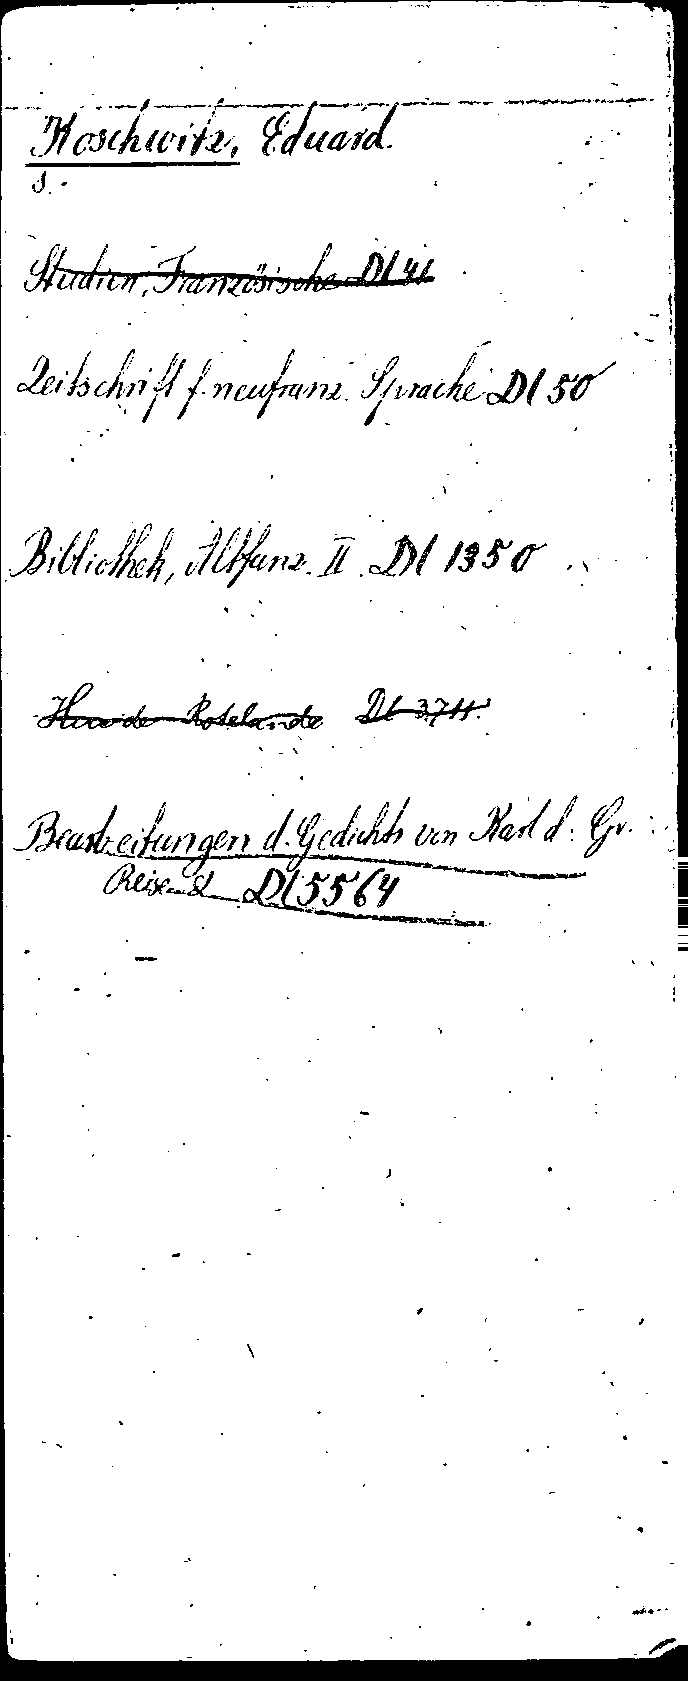 Koschwitz, Eduard.
s.
Studien, Französische Dl 41
Zeitschrift f. neufranz. Sprache Dl 50
Bibliothek, Altfranz. II. Dl 1350
Dl 3711.
Bearbeitungen d. Gedichts von Karl d. Gr.
Reise Dl 5564